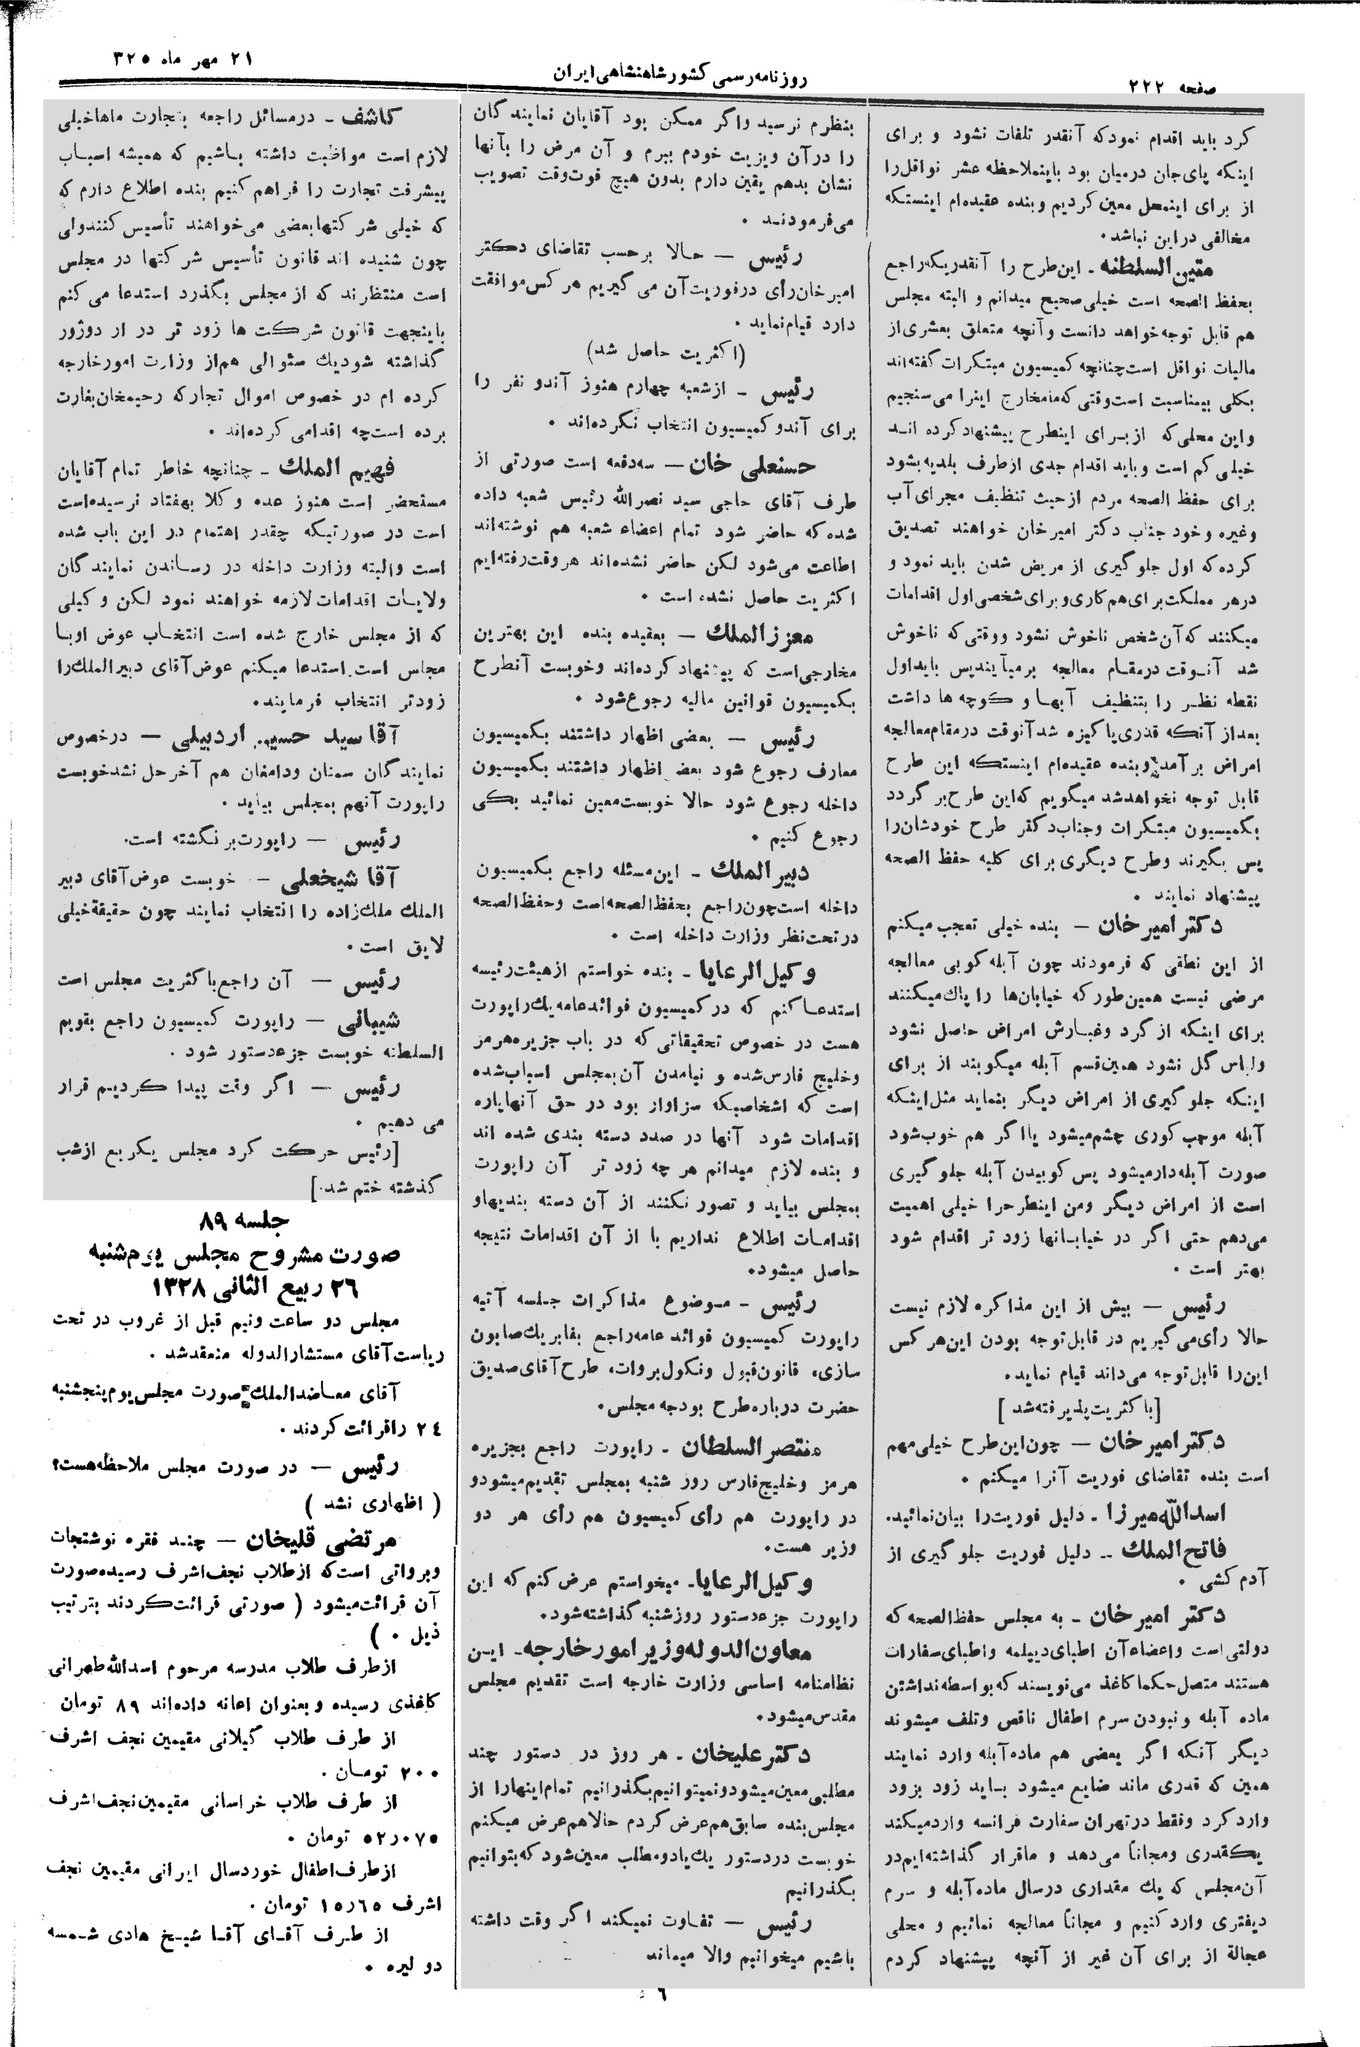 صفحه ۲۲۲
روزنامه رسمی کشور شاهنشاهی ایران
۲۱ مهر ماه ۳۲۵
کرد باید اقدام نمود که آنقدر تلفات نشود و برای
اینکه پای جان درمیان بود باینملاحظه عشر نواقل را
از برای اینمحل معین کردیم و بنده عقیده‌ام اینستکه
مخالفی در این نباشد.
متین السلطنه ـ این طرح را آنقدریکه راجع
بحفظ الصحه است خیلی صحیح میدانم و البته مجلس
هم قابل توجه خواهد دانست و آنچه متعلق بعشری از
مالیات نواقل است چنانچه کمیسیون مبتکرات گفته‌اند
بکلی بیمناسبت است وقتی که مامخارج اینرا می سنجیم
و این محلی که از برای اینطرح پیشنهاد کرده اند
خیلی کم است و باید اقدام جدی از طرف بلدیه بشود
برای حفظ الصحه مردم از حیث تنظیف مجرای آب
وغیره و خود جناب دکتر امیرخان خواهند تصدیق
کرده که اول جلوگیری از مریض شدن باید نمود و
درهر مملکت برای هم کاری و برای شخصی اول اقدامات
میکنند که آن شخص ناخوش نشود و وقتی که ناخوش
شد آنوقت درمقام معالجه برمیآیند پس باید اول
نقطه نظر را بتنظیف آبها و کوچه ها داشت
بعد از آنکه قدری پاکیزه شد آنوقت درمقام معالجه
امراض برآمد و بنده عقیده‌ام اینستکه این طرح
قابل توجه نخواهد شد میگویم که این طرح برگردد
بکمیسیون مبتکرات و جناب دکتر طرح خودشان را
پس بگیرند و طرح دیگری برای کلیه حفظ الصحه
پیشنهاد نمایند.
دکتر امیرخان ـ بنده خیلی تعجب میکنم
از این نطقی که فرمودند چون آبله کوبی معالجه
مرضی نیست همین طور که خیابان‌ها را پاک میکنند
برای اینکه از گرد و غبارش امراض حاصل نشود
ولباس گل نشود همین قسم آبله میگویند از برای
اینکه جلوگیری از امراض دیگر بنماید مثل اینکه
آبله موجب کوری چشم میشود یا اگر هم خوب شود
صورت آبله دار میشود پس کوبیدن آبله جلوگیری
است از امراض دیگر و من اینطرح را خیلی اهمیت
می‌دهم حتی اگر در خیابانها زود تر اقدام شود
بهتر است.
رئیس ـ بیش از این مذاکره لازم نیست
حالا رأی می گیریم در قابل توجه بودن این هر کس
این را قابل توجه می‌داند قیام نماید.
[با کثریت پذیرفته شد]
دکتر امیرخان ـ چون این طرح خیلی مهم
است بنده تقاضای فوریت آنرا میکنم.
اسدالله میرزا ـ دلیل فوریت را بیان نمائید.
فاتح الملک ـ دلیل فوریت جلوگیری از
آدم کشی.
دکتر امیرخان ـ به مجلس حفظ الصحه که
دولتی است و اعضاء آن اطبای دیپلمه و اطبای سفارات
هستند متصل حکما کاغذ می نویسند که بواسطه نداشتن
ماده آبله و نبودن سرم اطفال ناقص و تلف میشوند
دیگر آنکه اگر بعضی هم ماده آبله وارد نمایند
همین که قدری ماند ضایع میشود باید زود بزود
وارد کرد و فقط در تهران سفارت فرانسه وارد میکند
یکقدری و مجانا می‌دهد و ماقرار گذاشته‌ایم در
آن مجلس که یک مقداری درسال ماده آبله و سرم
دیفتری وارد کنیم و مجانا معالجه نمائیم و محلی
عجالة از برای آن غیر از آنچه پیشنهاد کردم
بنظرم نرسید و اگر ممکن بود آقایان نمایندگان
را در آن ویزیت خودم ببرم و آن مرض را بآنها
نشان بدهم یقین دارم بدون هیچ فوت وقت تصویب
می فرمودند.
رئیس ـ حالا برحسب تقاضای دکتر
امیرخان رأی در فوریت آن می گیریم هرکس موافقت
دارد قیام نماید.
(اکثریت حاصل شد)
رئیس ـ از شعبه چهارم هنوز آندو نفر را
برای آندو کمیسیون انتخاب نکرده‌اند.
حسنعلی خان ـ سه دفعه است صورتی از
طرف آقای حاجی سید نصرالله رئیس شعبه داده
شده که حاضر شود تمام اعضاء شعبه هم نوشته‌اند
اطاعت می شود لکن حاضر نشده‌اند هروقت رفته‌ایم
اکثریت حاصل نشده است.
معززالملک ـ بعقیده بنده این بهترین
مخارجی است که پیشنهاد کرده‌اند و خوبست آنطرح
بکمیسیون قوانین مالیه رجوع شود.
رئیس ـ بعضی اظهار داشتند بکمیسیون
معارف رجوع شود بعض اظهار داشتند بکمیسیون
داخله رجوع شود حالا خوبست معین نمائید بکی
رجوع کنیم.
دبیرالملک ـ این مسئله راجع بکمیسیون
داخله است چون راجع بحفظ الصحه است و حفظ الصحه
در تحت نظر وزارت داخله است.
وکیل الرعایا ـ بنده خواستم از هیئت رئیسه
استدعا کنم که در کمیسیون فوائد عامه یک راپورت
هست در خصوص تحقیقاتی که در باب جزیره هرمز
و خلیج فارس شده و نیامدن آن بمجلس اسباب شده
است که اشخاصیکه سزاوار بود در حق آنهاپاره
اقدامات شود آنها در صدد دسته بندی شده اند
و بنده لازم میدانم هر چه زود تر آن راپورت
بمجلس بیاید و تصور نکنند از آن دسته بندیها و
اقدامات اطلاع نداریم با از آن اقدامات نتیجه
حاصل میشود.
رئیس ـ موضوع مذاکرات جلسه آتیه
راپورت کمیسیون فوائد عامه راجع بفابریک صابون
سازی، قانون قبول و نکول بروات، طرح آقای صدیق
حضرت درباره طرح بودجه مجلس.
منتصر السلطان ـ راپورت راجع بجزیره
هرمز و خلیج فارس روز شنبه بمجلس تقدیم میشود و
در راپورت هم رأی کمیسیون هم رأی هر دو
وزیر هست.
وکیل الرعایا ـ میخواستم عرض کنم که این
راپورت جزء دستور روز شنبه گذاشته شود.
معاون الدوله وزیر امور خارجه ـ این
نظامنامه اساسی وزارت خارجه است تقدیم مجلس
مقدس میشود.
دکتر علیخان ـ هر روز در دستور چند
مطلبی معین میشود و نمیتوانیم بگذرانیم تمام اینها را از
مجلس بنده سابق هم عرض کردم حالا هم عرض میکنم
خوبست در دستور یک یا دو مطلب معین شود که بتوانیم
بگذرانیم
رئیس ـ تفاوت نمیکند اگر وقت داشته
باشیم میخوانیم والا میماند
کاشف ـ درمسائل راجعه بتجارت ماها خیلی
لازم است مواظبت داشته باشیم که همیشه اسباب
پیشرفت تجارت را فراهم کنیم بنده اطلاع دارم که
که خیلی شرکتها بعضی می‌خواهند تأسیس کنند ولی
چون شنیده اند قانون تأسیس شرکتها در مجلس
است منتظرند که از مجلس بگذرد استدعا می کنم
باینجهت قانون شرکت ها زود تر در اردوژور
گذاشته شود یک سئوالی هم از وزارت امور خارجه
کرده ام در خصوص اموال تجار که رحیمخان بغارت
برده است چه اقدامی کرده‌اند.
فهیم الملک ـ چنانچه خاطر تمام آقایان
مستحضر است هنوز عده وکلا بهفتاد نرسیده است
است در صورتیکه چقدر اهتمام در این باب شده
است و البته وزارت داخله در رساندن نمایندگان
ولایات اقدامات لازمه خواهند نمود لکن وکیلی
که از مجلس خارج شده است انتخاب عوض اوبا
مجلس است استدعا میکنم عوض آقای دبیرالملک را
زودتر انتخاب فرمایند.
آقا سید حسین اردبیلی ـ در خصوص
نمایندگان سمنان و دامغان هم آخر حل نشد خوبست
راپورت آنهم بمجلس بیاید.
رئیس ـ راپورت برنگشته است.
آقا شیخعلی ـ خوبست عوض آقای دبیر
الملک ملک زاده را انتخاب نمایند چون حقیقة خیلی
لایق است.
رئیس ـ آن راجع با کثریت مجلس است
شیبانی ـ راپورت کمیسیون راجع بقویم
السلطنه خوبست جزء دستور شود.
رئیس ـ اگر وقت پیدا کردیم قرار
می دهیم.
[رئیس حرکت کرد مجلس یکربع از شب
گذشته ختم شد]
جلسه ۸۹
صورت مشروح مجلس یوم شنبه
۲۶ ربیع الثانی ۱۳۲۸
مجلس دو ساعت ونیم قبل از غروب در تحت
ریاست آقای مستشارالدوله منعقد شد.
آقای معاضدالملک صورت مجلس یوم پنجشنبه
۲۴ را قرائت کردند.
رئیس ـ در صورت مجلس ملاحظه هست؟
(اظهاری نشد)
مرتضی قلیخان ـ چند فقره نوشتجات
وبرواتی است که از طلاب نجف اشرف رسیده صورت
آن قرائت میشود (صورتی قرائت کردند بترتیب
ذیل.)
از طرف طلاب مدرسه مرحوم اسدالله طهرانی
کاغذی رسیده و بعنوان اعانه داده‌اند ۸۹ تومان
از طرف طلاب گیلانی مقیمین نجف اشرف
۲۰۰ تومان.
از طرف طلاب خراسانی مقیمین نجف اشرف
۵۲٫۰۷۵ تومان.
از طرف اطفال خوردسال ایرانی مقیمین نجف
اشرف ۱۵٫۶۵ تومان.
از طرف آقای آقا شیخ هادی شمسه
دو لیره.
۶